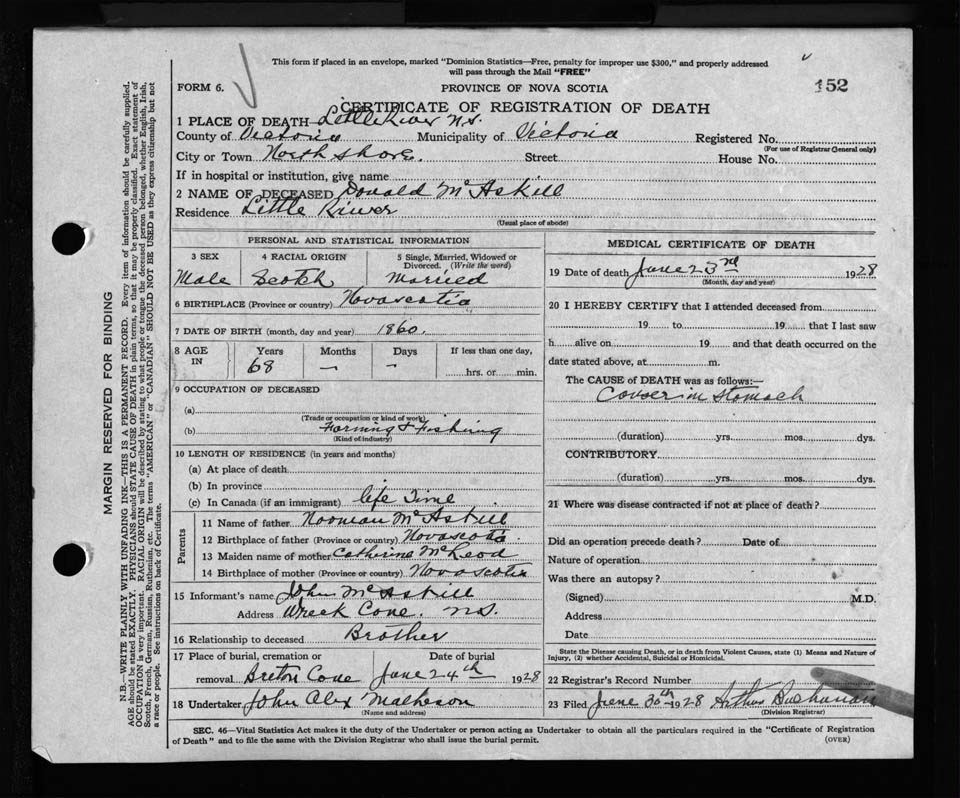 This form if placed in an envelope, marked "Dominion Statistics—Free, penalty for improper use $300," and properly addressed
will pass through the Mail "FREE"
FORM 6.
PROVINCE OF NOVA SCOTIA
152
CERTIFICATE OF REGISTRATION OF DEATH
1 PLACE OF DEATH Little River N.S.
County of Victoria Municipality of Victoria Registered No.
(For use of Registrar General only)
City or Town North Shore. Street House No.
If in hospital or institution, give name
2 NAME OF DECEASED Donald McAskill
Residence Little River
(Usual place of abode)
PERSONAL AND STATISTICAL INFORMATION
3 SEX 4 RACIAL ORIGIN 5 Single, Married, Widowed or
Divorced. (Write the word)
Male Scotch Married
6 BIRTHPLACE (Province or country) Novascotia
7 DATE OF BIRTH (month, day and year) 1860.
8 AGE IN Years Months Days If less than one day,
68 — - hrs. or min.
9 OCCUPATION OF DECEASED
(a)
(Trade or occupation or kind of work)
(b) Farming & Fishing
(Kind of industry)
10 LENGTH OF RESIDENCE (in years and months)
(a) At place of death
(b) In province
(c) In Canada (if an immigrant) life Time
Parents
11 Name of father Norman McAskill
12 Birthplace of father (Province or country) Novascotia
13 Maiden name of mother Catherine McLeod
14 Birthplace of mother (Province or country) Novascotia
15 Informant's name John McAskill
Address Wreck Cove. N.S.
16 Relationship to deceased Brother
17 Place of burial, cremation or Date of burial
removal Breton Cove June 24th 1928
18 Undertaker John Alex Matheson
(Name and address)
MEDICAL CERTIFICATE OF DEATH
19 Date of death June 23rd 1928
(Month, day and year)
20 I HEREBY CERTIFY that I attended deceased from
19 to 19 that I last saw
h alive on 19 and that death occurred on the
date stated above, at m.
The CAUSE of DEATH was as follows:—
Canser in stomach
(duration) yrs. mos. dys.
CONTRIBUTORY
(duration) yrs. mos. dys.
21 Where was disease contracted if not at place of death?
Did an operation precede death? Date of
Nature of operation
Was there an autopsy?
(Signed) M.D.
Address
Date
State the Disease causing Death, or in death from Violent Causes, state (1) Means and Nature of
Injury, (2) whether Accidental, Suicidal or Homicidal.
22 Registrar's Record Number
23 Filed June 30th 1928 Arthur Buchanan
(Division Registrar)
SEC. 46—Vital Statistics Act makes it the duty of the Undertaker or person acting as Undertaker to obtain all the particulars required in the "Certificate of Registration
of Death" and to file the same with the Division Registrar who shall issue the burial permit.
(OVER)
MARGIN RESERVED FOR BINDING
N.B.—WRITE PLAINLY WITH UNFADING INK—THIS IS A PERMANENT RECORD. Every item of information should be carefully supplied.
AGE should be stated EXACTLY. PHYSICIANS should STATE CAUSE OF DEATH in plain terms, so that it may be properly classified. Exact statement of
OCCUPATION is very important. RACIAL ORIGIN will be described by stating to what people or tongue the deceased person belonged, whether English, Irish,
Scotch, French, German, Russian, Ruthenian, etc. The terms "AMERICAN" or "CANADIAN" SHOULD NOT BE USED as they express citizenship but not
a race or people. See instructions on back of Certificate.